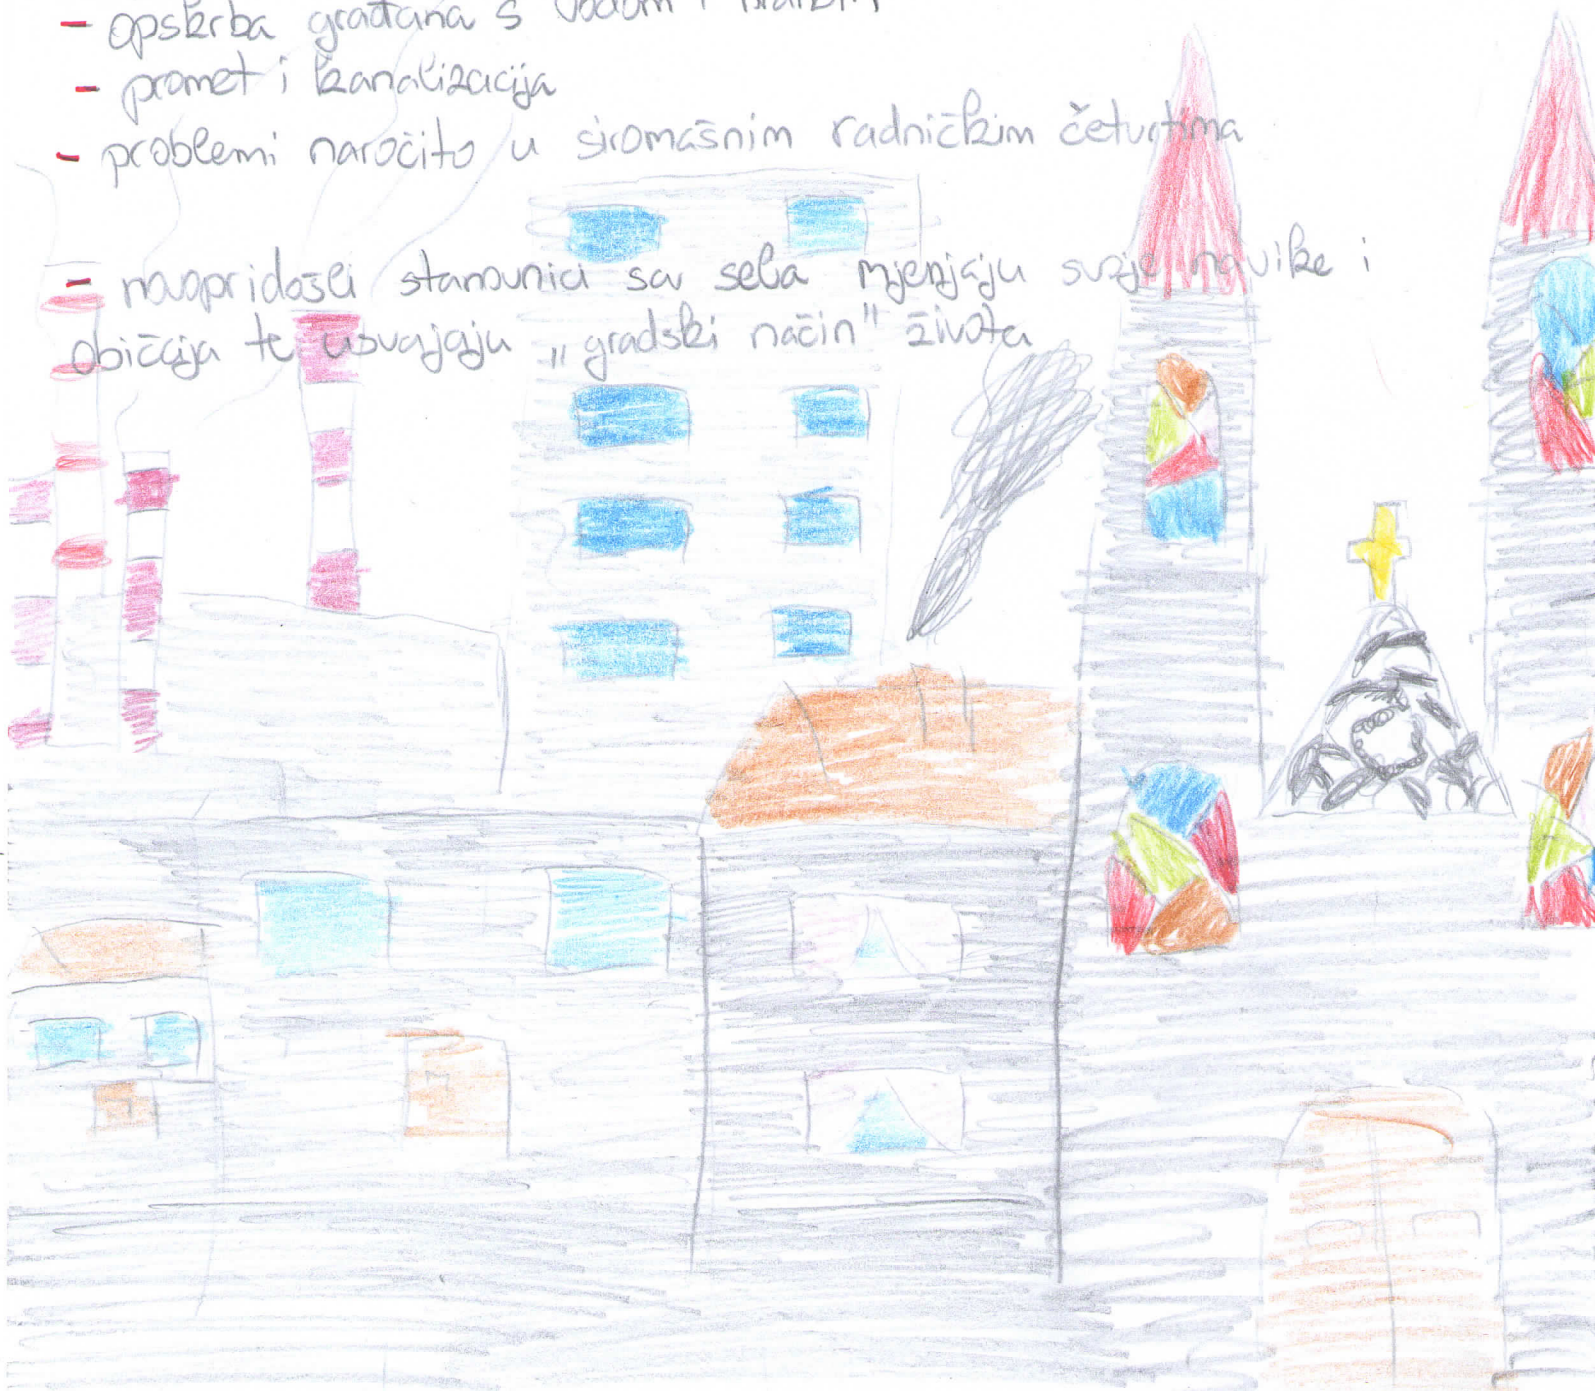 - opskrba građana s vodom i
- promet i kanalizacija
- problemi naročito u siromašnim radničkim četvrtima
- novopridošli stanovnici sa sela mjenjaju svoje navike i
običaja te usvajaju „gradski način" života